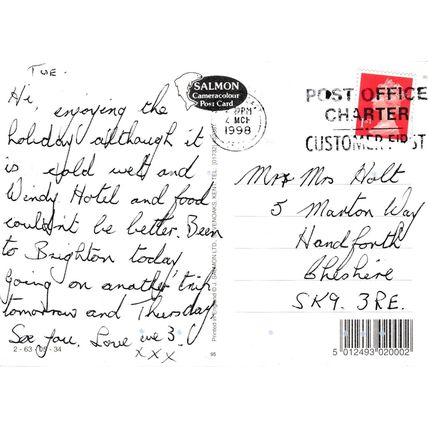 TUE.
Hi, enjoying the
holiday although it
is cold wet and
Windy Hotel and food
couldn't be better. Been
to Brighton today,
Going on another trip
tomorrow and Thursday
See you. Love we 3.
xxx
2-63-05-34
SALMON
Cameracolour
Post Card
1998
POST OFFICE
CHARTER
CUSTOMER FIRST
Mr & Mrs Holt
5 Marton Way
Handforth
Cheshire
SK9. 3RE.
5 012493 020002